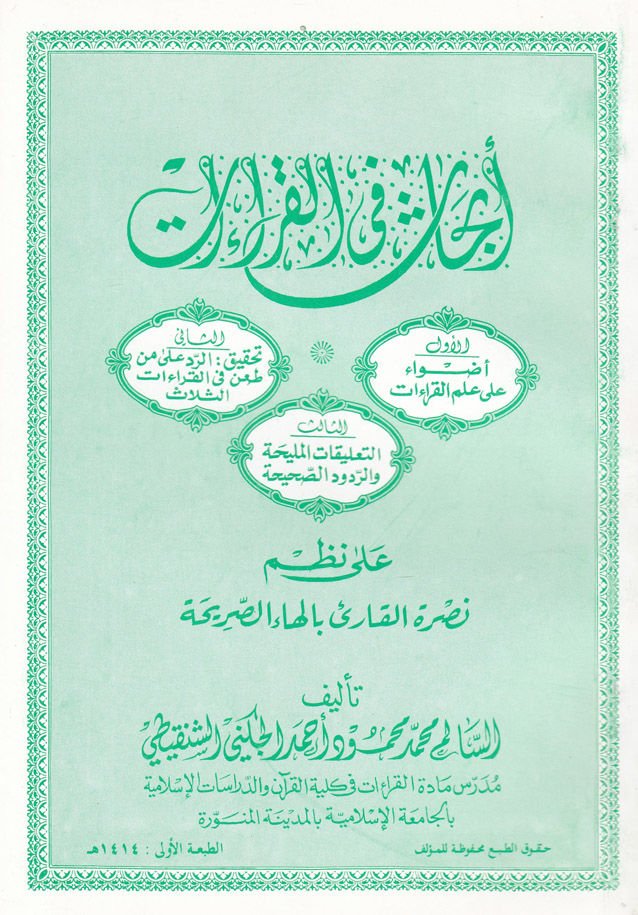 أبحاث في القراءات
الأول
أضواء
على علم القراءات
الثاني
تحقيق: الرد على من
طعن في القراءات
الثلاث
الثالث
التعليقات المليحَة
والرّدود الصّحيحَة
عَلى نظم
نصرة القارئ بالهاء الصّريحَة
تأليف
السالم محمد محمود أحمد الجكني الشنقيطي
مُدَرّس مادة القراءات في كلية القرآن والدّراسات الإسلامية
بالجامعة الإسلاميّة بالمدينة المنوّرة
حقوق الطبع محفوظة للمؤلف
الطبعة الأولى: ١٤١٤هـ